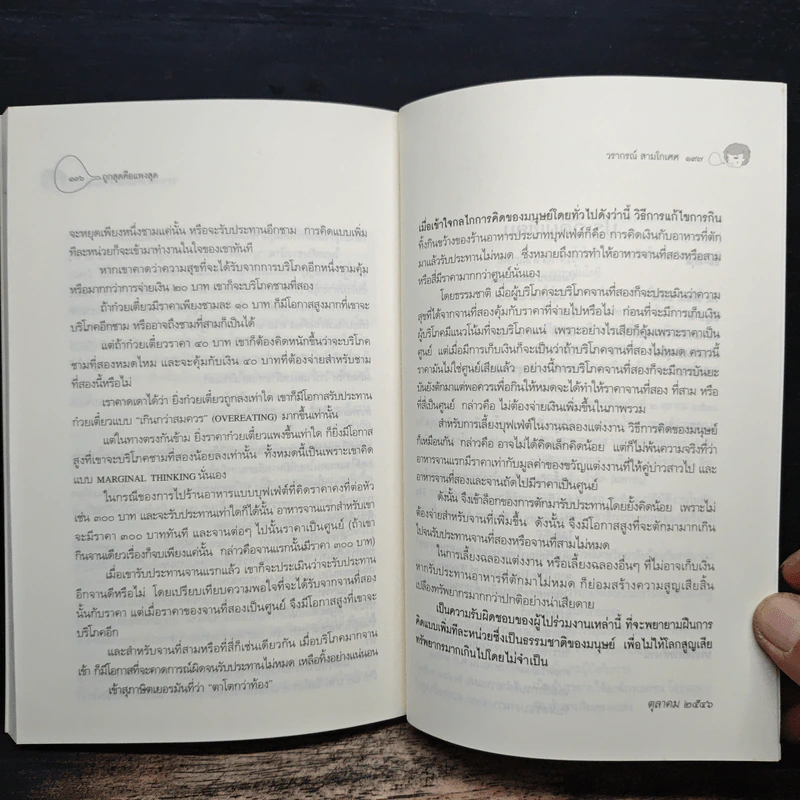 ๑๙๖ ถูกสุดคือแพงสุด
จะหยุดเพียงหนึ่งชามแค่นั้น หรือจะรับประทานอีกชาม การคิดแบบเพิ่ม
ทีละหน่วยก็จะเข้ามาทำงานในใจของเขาทันที
หากเขาคาดว่าความสุขที่จะได้รับจากการบริโภคอีกหนึ่งชามคุ้ม
หรือมากกว่าการจ่ายเงิน ๒๐ บาท เขาก็จะบริโภคชามที่สอง
ถ้าก๋วยเตี๋ยวมีราคาเพียงชามละ ๑๐ บาท ก็มีโอกาสสูงมากที่เขาจะ
บริโภคอีกชาม หรืออาจถึงชามที่สามก็เป็นได้
แต่ถ้าก๋วยเตี๋ยวราคา ๔๐ บาท เขาก็ต้องคิดหนักขึ้นว่าจะบริโภค
ชามที่สองหมดไหม และจะคุ้มกับเงิน ๔๐ บาทที่ต้องจ่ายสำหรับชาม
ที่สองนี้หรือไม่
เราคาดเดาได้ว่า ยิ่งก๋วยเตี๋ยวถูกลงเท่าใด เขาก็มีโอกาสรับประทาน
ก๋วยเตี๋ยวแบบ "เกินกว่าสมควร" (OVEREATING) มากขึ้นเท่านั้น
แต่ในทางตรงกันข้าม ยิ่งราคาก๋วยเตี๋ยวแพงขึ้นเท่าใด ก็ยิ่งมีโอกาส
สูงที่เขาจะบริโภคชามที่สองน้อยลงเท่านั้น ทั้งหมดนี้เป็นเพราะเขาคิด
แบบ MARGINAL THINKING นั่นเอง
ในกรณีของการไปร้านอาหารแบบบุฟเฟ่ต์ที่คิดราคาคงที่ต่อหัว
เช่น ๓๐๐ บาท และจะรับประทานเท่าใดก็ได้นั้น อาหารจานแรกสำหรับเขา
จะมีราคา ๓๐๐ บาททันที และจานต่อๆ ไปนั้นราคาเป็นศูนย์ (ถ้าเขา
กินจานเดียวเรื่องก็จบเพียงแค่นั้น กล่าวคือจานแรกนั้นมีราคา ๓๐๐ บาท)
เมื่อเขารับประทานจานแรกแล้ว เขาก็จะประเมินว่าจะรับประทาน
อีกจานดีหรือไม่ โดยเปรียบเทียบความพอใจที่จะได้รับจากจานที่สอง
นั้นกับราคา แต่เมื่อราคาของจานที่สองเป็นศูนย์ จึงมีโอกาสสูงที่เขาจะ
บริโภคอีก
และสำหรับจานที่สามหรือที่สี่ก็เช่นเดียวกัน เมื่อบริโภคมากจาน
เข้า ก็มีโอกาสที่จะคาดการณ์ผิดจนรับประทานไม่หมด เหลือทิ้งอย่างแน่นอน
เข้าสุภาษิตเยอรมันที่ว่า "ตาโตกว่าท้อง"
วรากรณ์ สามโกเศศ ๑๙๗
เมื่อเข้าใจกลไกการคิดของมนุษย์โดยทั่วไปดังว่านี้ วิธีการแก้ไขการกิน
ทิ้งกินขว้างของร้านอาหารประเภทบุฟเฟ่ต์ก็คือ การคิดเงินกับอาหารที่ตัก
มาแล้วรับประทานไม่หมด ซึ่งหมายถึงการทำให้อาหารจานที่สองหรือสาม
หรือสี่มีราคามากกว่าศูนย์นั่นเอง
โดยธรรมชาติ เมื่อผู้บริโภคจะบริโภคจานที่สองก็จะประเมินว่าความ
สุขที่ได้จากจานที่สองคุ้มกับราคาที่จ่ายไปหรือไม่ ก่อนที่จะมีการเก็บเงิน
ผู้บริโภคมีแนวโน้มที่จะบริโภคแน่ เพราะอย่างไรเสียก็คุ้มเพราะราคาเป็น
ศูนย์ แต่เมื่อมีการเก็บเงินก็จะเป็นว่าถ้าบริโภคจานที่สองไม่หมด คราวนี้
ราคามันไม่ใช่ศูนย์เสียแล้ว อย่างนี้การบริโภคจานที่สองก็จะมีการบันยะ
บันยังตักมาแต่พอควรเพื่อกินให้หมดจะได้ทำให้ราคาจานที่สอง ที่สาม หรือ
ที่สี่เป็นศูนย์ กล่าวคือ ไม่ต้องจ่ายเงินเพิ่มขึ้นในภาพรวม
สำหรับการเลี้ยงบุฟเฟ่ต์ในงานฉลองแต่งงาน วิธีการคิดของมนุษย์
ก็เหมือนกัน กล่าวคือ อาจไม่ได้คิดเล็กคิดน้อย แต่ก็ไม่พ้นความจริงที่ว่า
อาหารจานแรกมีราคาเท่ากับมูลค่าของขวัญแต่งงานที่ให้คู่บ่าวสาวไป และ
อาหารจานที่สองและจานถัดไปมีราคาเป็นศูนย์
ดังนั้น จึงเข้าล็อกของการตักมารับประทานโดยยั้งคิดน้อย เพราะไม่
ต้องจ่ายสำหรับจานที่เพิ่มขึ้น ดังนั้น จึงมีโอกาสสูงที่จะตักมามากเกิน
ไปจนรับประทานจานที่สองหรือจานที่สามไม่หมด
ในการเลี้ยงฉลองแต่งงาน หรือเลี้ยงฉลองอื่นๆ ที่ไม่อาจเก็บเงิน
หากรับประทานอาหารที่ตักมาไม่หมด ก็ย่อมสร้างความสูญเสียสิ้น
เปลืองทรัพยากรมากกว่าปกติอย่างน่าเสียดาย
เป็นความรับผิดชอบของผู้ไปร่วมงานเหล่านี้ ที่จะพยายามฝืนการ
คิดแบบเพิ่มทีละหน่วยซึ่งเป็นธรรมชาติของมนุษย์ เพื่อไม่ให้โลกสูญเสีย
ทรัพยากรมากเกินไปโดยไม่จำเป็น
ตุลาคม ๒๕๔๖